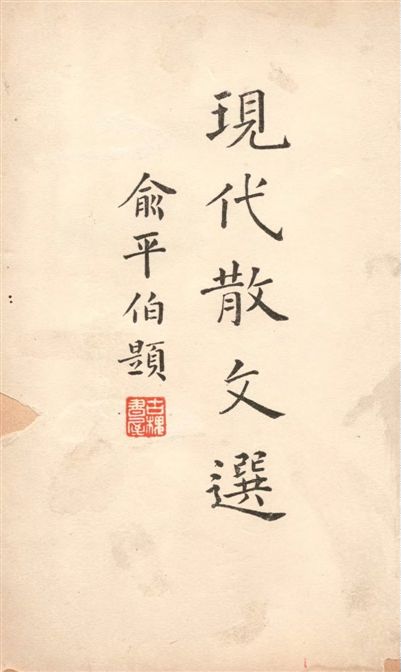 現代散文選
俞平伯題
古槐書屋